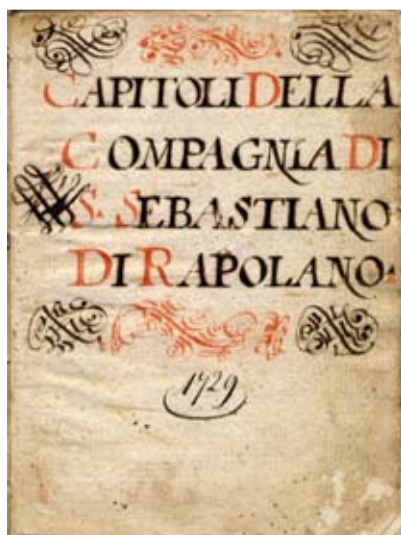 CAPITOLI DELLA
COMPAGNIA DI
S. SEBASTIANO
DI RAPOLANO.
1729